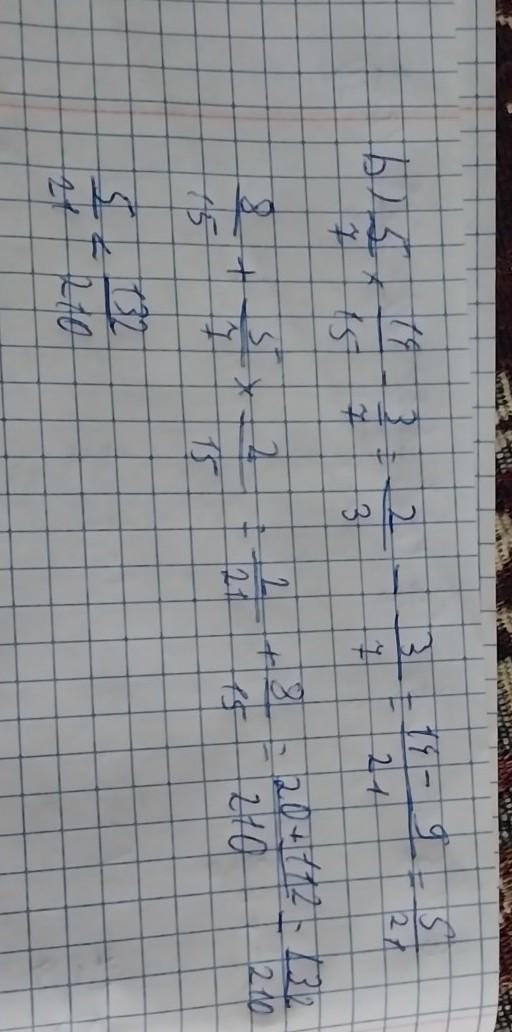 b) 5/7 × 14/15 - 3/7 = 2/3 - 3/7 = 14-9/21 = 5/21
8/15 + 5/7 × 2/15 = 2/21 + 8/15 = 20+112/210 = 132/210
5/21 < 132/210